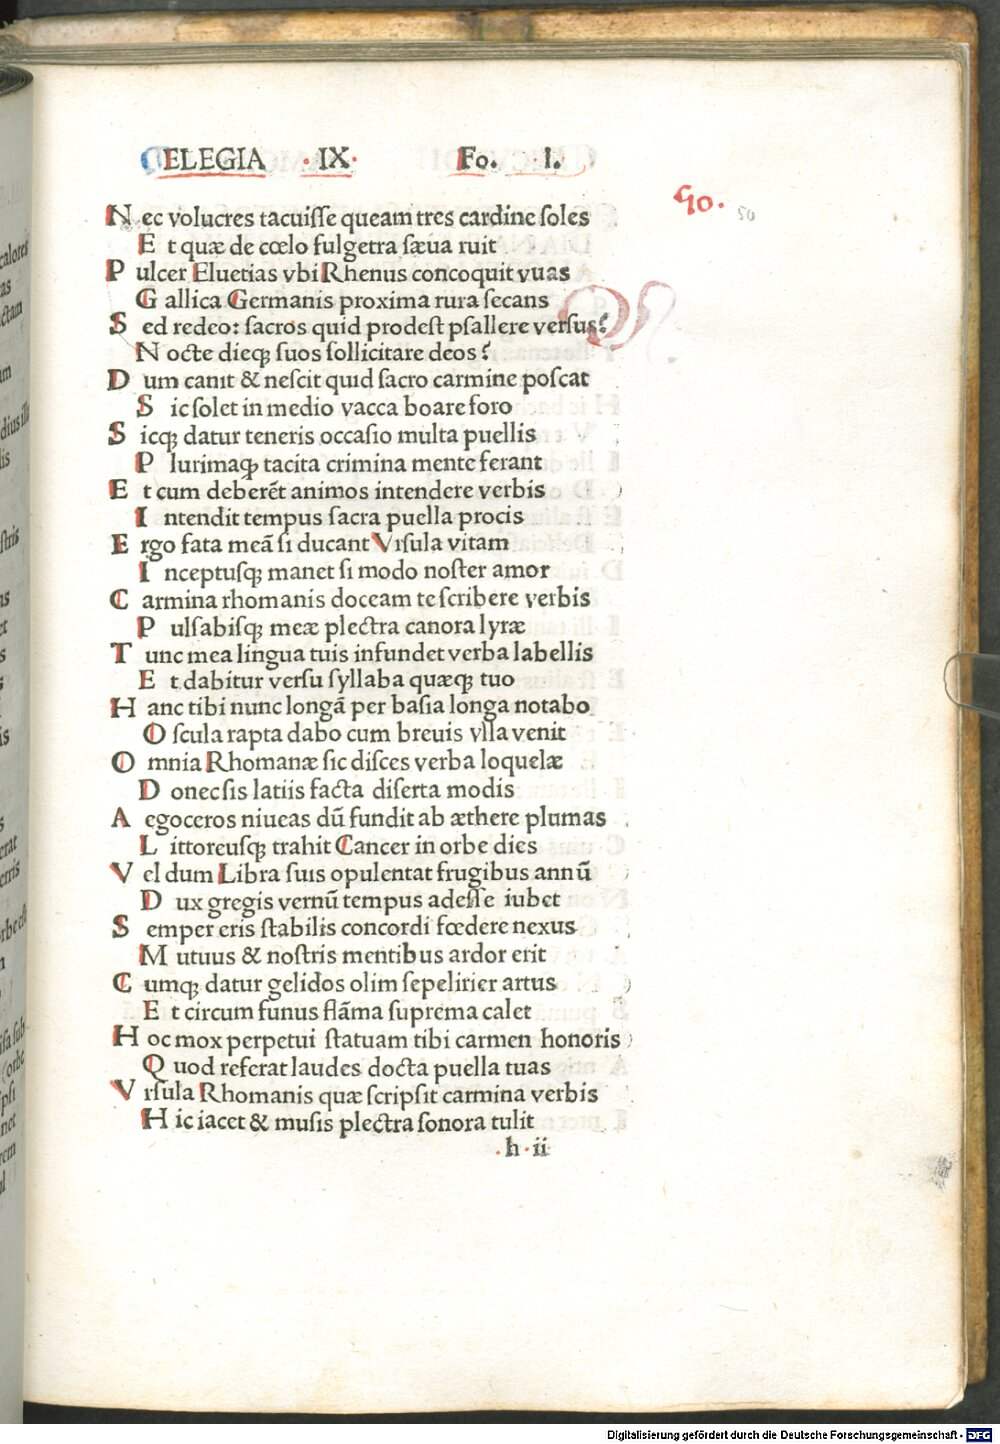 ELEGIA · IX · Fo. · I.
50.
50
N ec volucres tacuiſſe queam tres cardine ſoles
E t quæ de cœlo fulgetra ſæua ruit
P ulcer Eluetias vbi Rhenus concoquit vuas
G allica Germanis proxima rura ſecans
S ed redeo: ſacros quid prodeſt pſallere verſus?
N octe dieqꝫ ſuos ſollicitare deos?
D um canit & neſcit quid ſacro carmine poſcat
S ic ſolet in medio vacca boare foro
S icqꝫ datur teneris occaſio multa puellis
P lurimaqꝫ tacita crimina mente ferant
E t cum deberēt animos intendere verbis
I ntendit tempus ſacra puella procis
E rgo fata meā ſi ducant Vrſula vitam
I nceptuſqꝫ manet ſi modo noſter amor
C armina rhomanis doceam te ſcribere verbis
P ulſabiſqꝫ meæ plectra canora lyræ
T unc mea lingua tuis infundet verba labellis
E t dabitur verſu ſyllaba quæqꝫ tuo
H anc tibi nunc longā per baſia longa notabo
O ſcula rapta dabo cum breuis vlla venit
O mnia Rhomanæ ſic diſces verba loquelæ
D onec ſis latiis facta diſerta modis
A egoceros niueas dū fundit ab æthere plumas
L ittoreuſqꝫ trahit Cancer in orbe dies
V el dum Libra ſuis opulentat frugibus annū
D ux gregis vernū tempus adeſſe iubet
S emper eris ſtabilis concordi fœdere nexus
M utuus & noſtris mentibus ardor erit
C umqꝫ datur gelidos olim ſepelirier artus
E t circum funus flāma ſuprema calet
H oc mox perpetui ſtatuam tibi carmen honoris
Q uod referat laudes docta puella tuas
V rſula Rhomanis quæ ſcripſit carmina verbis
H ic iacet & muſis plectra ſonora tulit
· h · ii
Digitalisierung gefördert durch die Deutsche Forschungsgemeinschaft - DFG